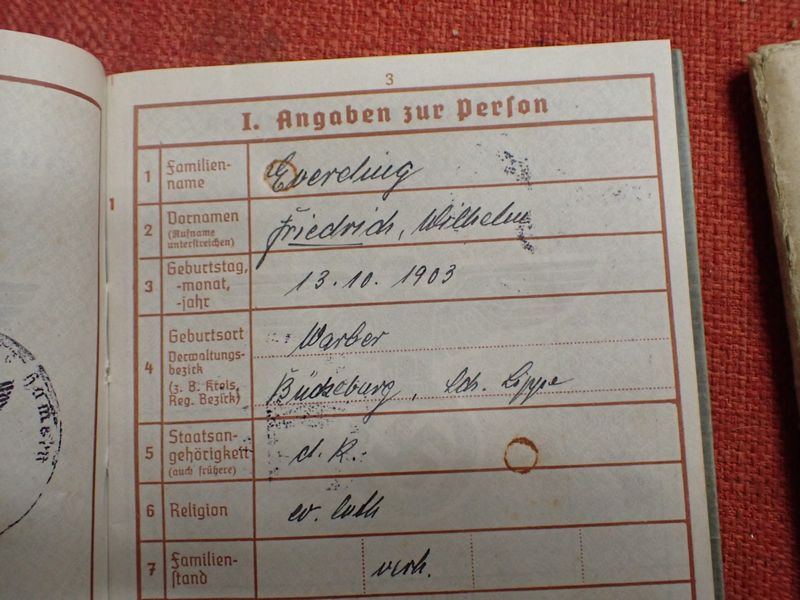 3
I. Angaben zur Person
1
1 Familien-
name
Everding
2 Vornamen
(Rufname
unterstreichen)
Friedrich, Wilhelm
3 Geburtstag,
-monat,
-jahr
13. 10. 1903
4 Geburtsort
Verwaltungs-
bezirk
(z. B. Kreis,
Reg. Bezirk)
Warber
Bückeburg, Sch. Lippe
5 Staatsan-
gehörigkeit
(auch frühere)
d. R.
6 Religion
ev. luth
7 Familien-
stand
verh.
Hameln